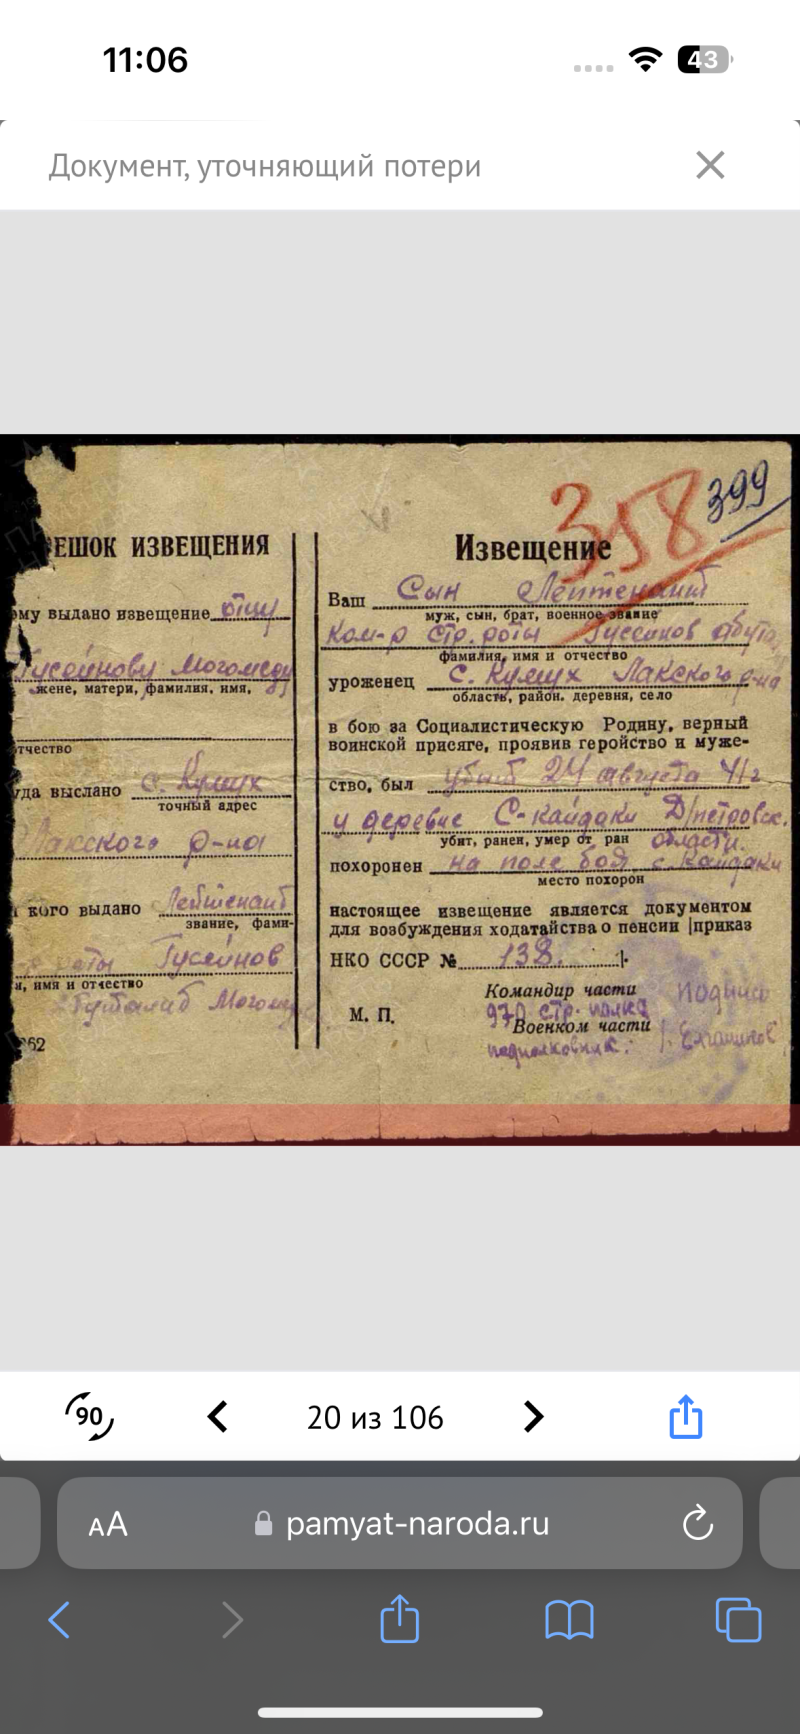 11:06
43
Документ, уточняющий потери
358
399
ЕШОК ИЗВЕЩЕНИЯ
ому выдано извещение отцу
Гусейнову Могомеду
жене, матери, фамилия, имя,
тчество
уда выслано с. Кумух
точный адрес
Лакского р-на
кого выдано Лейтенант
звание, фами-
роты Гусейнов
я, имя и отчество
62
Извещение
Ваш Сын Лейтенант
муж, сын, брат, военное звание
ком-р стр. роты Гусейнов
фамилия, имя и отчество
уроженец с. Кумух Лакского р-на
область, район, деревня, село
в бою за Социалистическую Родину, верный
воинской присяге, проявив геройство и муже-
ство, был убит 24 августа 41г
у деревне С-кайдаки Д/петровск.
убит, ранен, умер от ран области.
похоронен на поле боя с. Кайдаки
место похорон
настоящее извещение является документом
для возбуждения ходатайства о пенсии (приказ
НКО СССР № 138.
М. П.
Командир части подпись
970 стр. полка
Военком части
подполковник.
20 из 106
90
AA
pamyat-naroda.ru